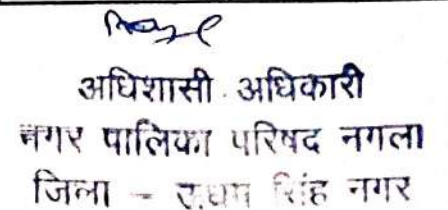 अधिशासी अधिकारी
नगर पालिका परिषद नगला
जिला - ऊधम सिंह नगर